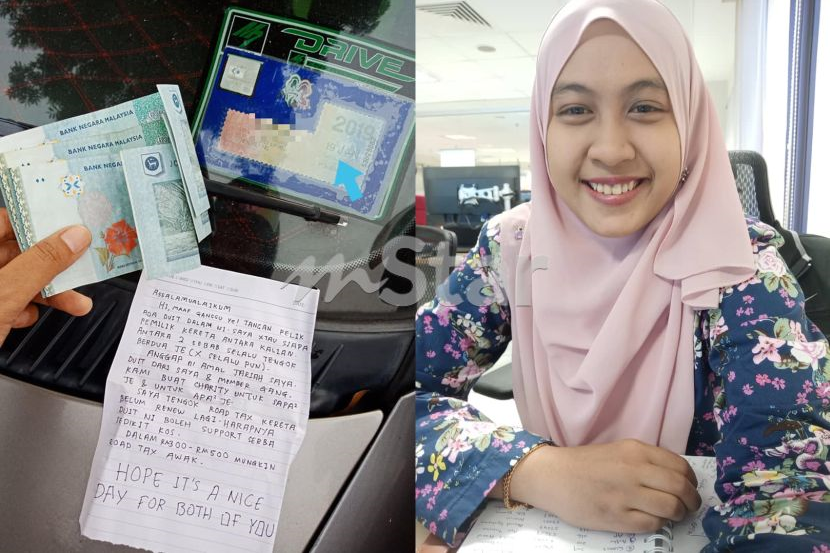 DRIVE
2019
BANK NEGARA MALAYSIA
BANK NEGARA MALAYSIA
mStar
ASSALAMUALAIKUM
HI, MAAF GANGGU YE! JANGAN PELIK
ADA DUIT DALAM NI. SAYA XTAU SIAPA
PEMILIK KERETA ANTARA KALIAN
ANTARA 2 SEBAB SELALU TENGOK
BERDUA JE (X SELALU PUN).
ANGGAP NI AMAL JARIAH SAYA.
DUIT DARI SAYA & MEMBER GANG.
KAMI BUAT CHARITY UNTUK SAPA²
JE & UNTUK APA² JE.
SAYA TENGOK ROAD TAX KERETA
BELUM RENEW LAGI. HARAPNYA
DUIT NI BOLEH SUPPORT SERBA
SEDIKIT KOS.
DALAM RM300-RM500 MUNGKIN
ROAD TAX AWAK.
HOPE IT'S A NICE
DAY FOR BOTH OF YOU